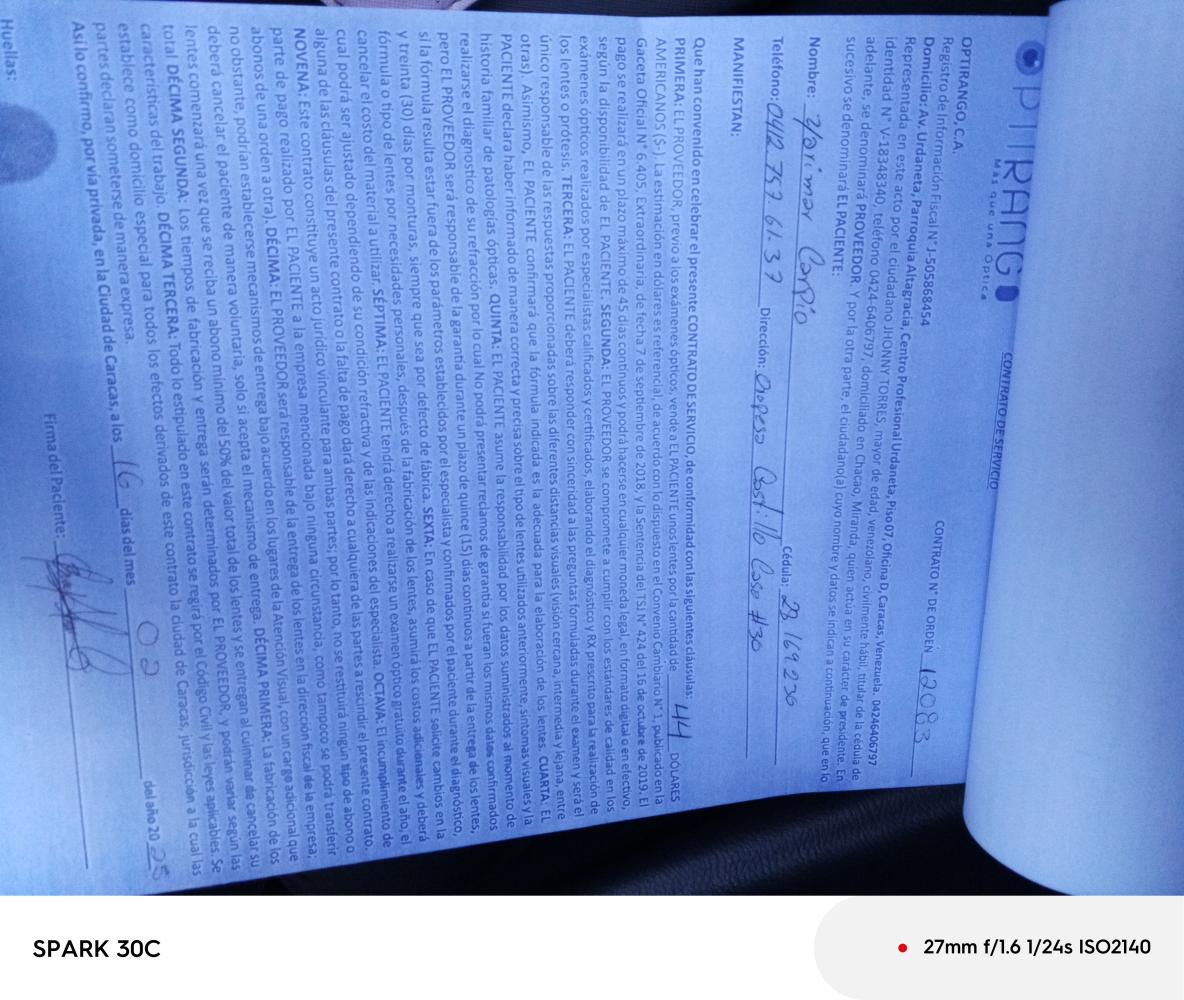 OPTIRANGO
Más que una Óptica
CONTRATO DE SERVICIO
CONTRATO N° DE ORDEN 12083
OPTIRANGO, C.A.
Registro de Información Fiscal N° J-505868454
Domicilio: Av. Urdaneta, Parroquia Altagracia, Centro Profesional Urdaneta, Piso 07, Oficina D, Caracas, Venezuela. 04246406797
Representada en este acto por el ciudadano JHONNY TORRES, mayor de edad, venezolano, civilmente hábil, titular de la cédula de
identidad N° V-18348340, teléfono 0424-6406797, domiciliado en Chacao, Miranda, quien actúa en su carácter de presidente. En
adelante, se denominará PROVEEDOR. Y por la otra parte, el ciudadano(a) cuyo nombre y datos se indican a continuación, que en lo
sucesivo se denominará EL PACIENTE:
Nombre: Yorimar Carpio Cédula: 23 169 236
Teléfono: 0412 757. 61. 37 Dirección: Oropeza Castillo Casa #30
MANIFIESTAN:
Que han convenido en celebrar el presente CONTRATO DE SERVICIO, de conformidad con las siguientes cláusulas:
PRIMERA: EL PROVEEDOR, previo a los exámenes ópticos, vende a EL PACIENTE unos lentes por la cantidad de 44 DÓLARES
AMERICANOS ($-). La estimación en dólares es referencial, de acuerdo con lo dispuesto en el Convenio Cambiario N° 1, publicado en la
Gaceta Oficial N° 6.405, Extraordinaria, de fecha 7 de septiembre de 2018, y la Sentencia del TSJ N° 424 del 16 de octubre de 2019. El
pago se realizará en un plazo máximo de 45 días continuos y podrá hacerse en cualquier moneda legal, en formato digital o en efectivo,
según la disponibilidad de EL PACIENTE. SEGUNDA: EL PROVEEDOR se compromete a cumplir con los estándares de calidad en los
exámenes ópticos realizados por especialistas calificados y certificados, elaborando el diagnóstico y RX prescrito para la realización de
los lentes o prótesis. TERCERA: EL PACIENTE deberá responder con sinceridad a las preguntas formuladas durante el examen y será el
único responsable de las respuestas proporcionadas sobre las diferentes distancias visuales (visión cercana, intermedia y lejana, entre
otras). Asimismo, EL PACIENTE confirmará que la fórmula indicada es la adecuada para la elaboración de los lentes. CUARTA: EL
PACIENTE declara haber informado de manera correcta y precisa sobre el tipo de lentes utilizados anteriormente, síntomas visuales y la
historia familiar de patologías ópticas. QUINTA: EL PACIENTE asume la responsabilidad por los datos suministrados al momento de
realizarse el diagnostico de su refracción por lo cual No podrá presentar reclamos de garantía si fueran los mismos datos confirmados
pero EL PROVEEDOR será responsable de la garantía durante un plazo de quince (15) días continuos a partir de la entrega de los lentes,
si la fórmula resulta estar fuera de los parámetros establecidos por el especialista y confirmados por el paciente durante el diagnóstico,
y treinta (30) días por monturas, siempre que sea por defecto de fábrica. SEXTA: En caso de que EL PACIENTE solicite cambios en la
fórmula o tipo de lentes por necesidades personales, después de la fabricación de los lentes, asumirá los costos adicionales y deberá
cancelar el costo del material a utilizar. SÉPTIMA: EL PACIENTE tendrá derecho a realizarse un examen óptico gratuito durante el año, el
cual podrá ser ajustado dependiendo de su condición refractiva y de las indicaciones del especialista. OCTAVA: El incumplimiento de
alguna de las cláusulas del presente contrato o la falta de pago dará derecho a cualquiera de las partes a rescindir el presente contrato.
NOVENA: Este contrato constituye un acto jurídico vinculante para ambas partes; por lo tanto, no se restituirá ningún tipo de abono o
parte de pago realizado por EL PACIENTE a la empresa mencionada bajo ninguna circunstancia, como tampoco se podrá transferir
abonos de una orden a otra). DÉCIMA: EL PROVEEDOR será responsable de la entrega de los lentes en la dirección fiscal de la empresa;
no obstante, podrían establecerse mecanismos de entrega bajo acuerdo en los lugares de la Atención Visual, con un cargo adicional que
deberá cancelar el paciente de manera voluntaria, solo si acepta el mecanismo de entrega. DÉCIMA PRIMERA: La fabricación de los
lentes comenzará una vez que se reciba un abono mínimo del 50% del valor total de los lentes y se entregan al culminar de cancelar su
total DÉCIMA SEGUNDA: Los tiempos de fabricación y entrega serán determinados por EL PROVEEDOR, y podrán variar según las
características del trabajo. DÉCIMA TERCERA: Todo lo estipulado en este contrato se regirá por el Código Civil y las leyes aplicables. Se
establece como domicilio especial para todos los efectos derivados de este contrato la ciudad de Caracas, jurisdicción a la cual las
partes declaran someterse de manera expresa.
Así lo confirmo, por vía privada, en la Ciudad de Caracas, a los 16 días del mes 02 del año 2025
Firma del Paciente:
Huellas:
SPARK 30C
27mm f/1.6 1/24s ISO2140